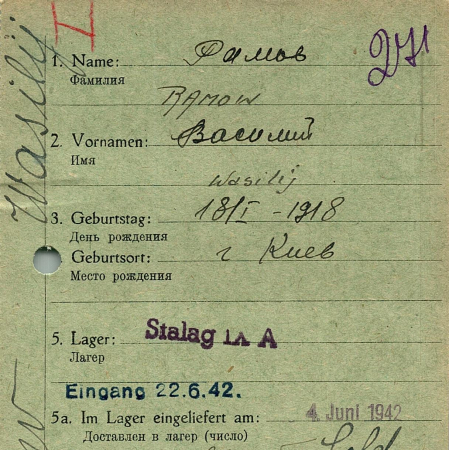 I
271
Wasilij
1. Name: Рамов
Фамилия
RAMOW
2. Vornamen: Василий
Имя
Wasilij
3. Geburtstag: 18/I - 1918
День рождения
Geburtsort: г Киев
Место рождения
5. Lager: Stalag IX A
Лагер
Eingang 22.6.42.
5a. Im Lager eingeliefert am: 4. Juni 1942
Доставлен в лагер (число)